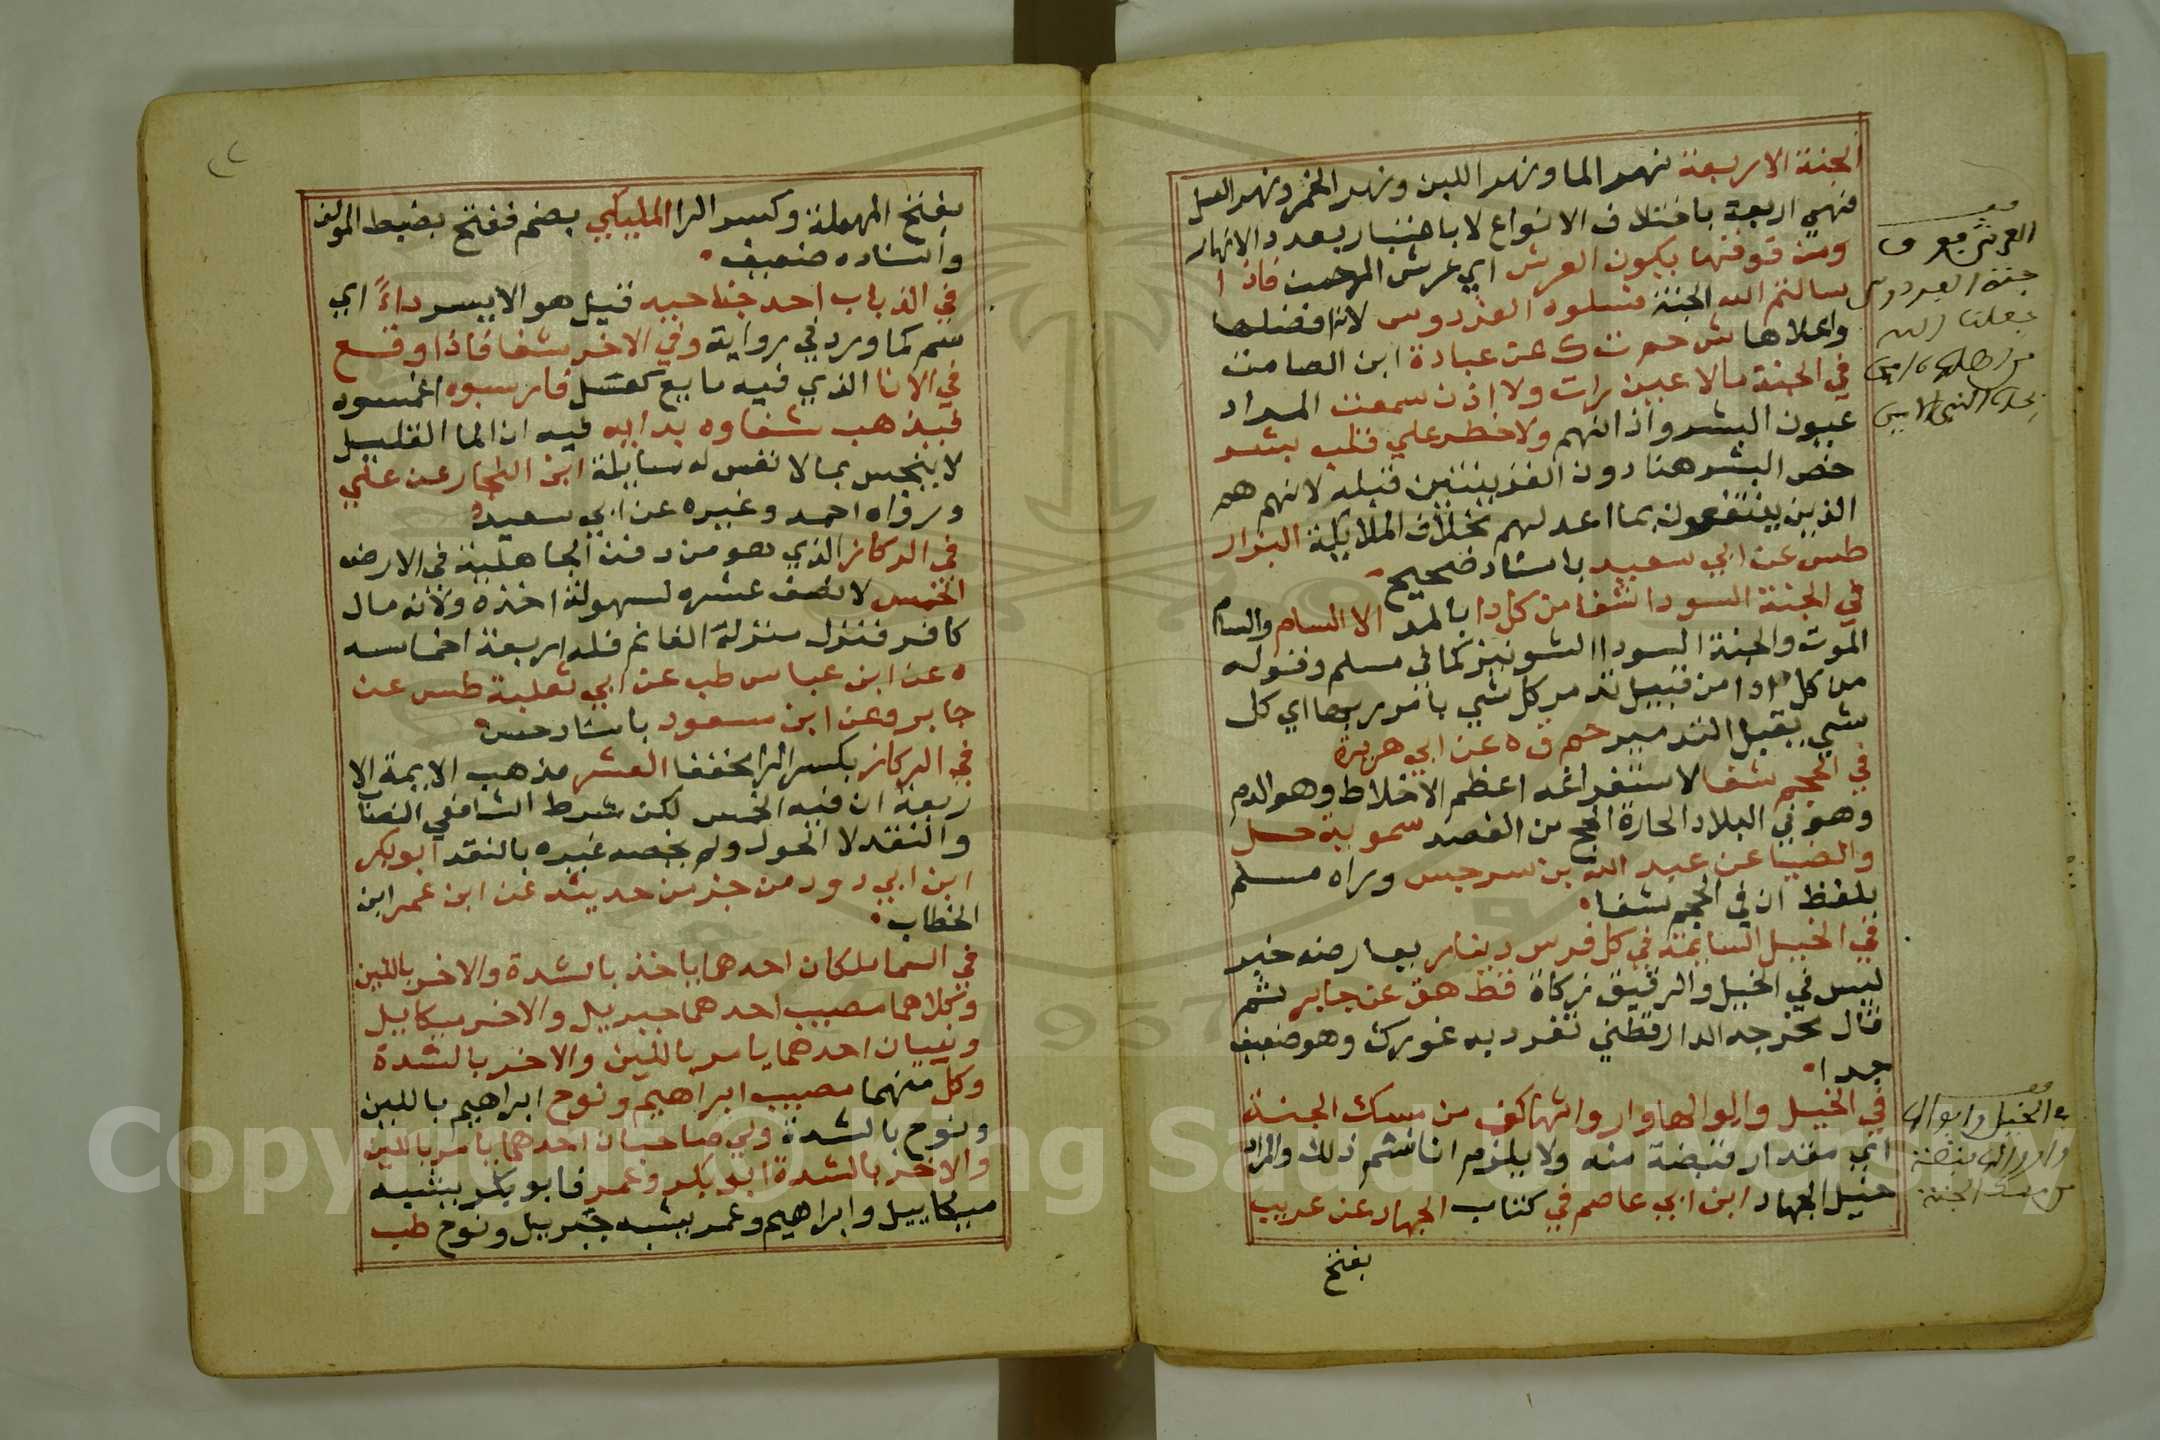 الجنة الاربعة نهر الما ونهر اللبن ونهر الخمر ونهر العسل
فهي اربعة باختلاف الانواع لا باعتبار تعدد الانهار
ومن فوقها يكون العرش اي عرش الرحمن فاذا
سالتم الله الجنة فسلوه الفردوس لانه افضلها
واعلاها ش حم ت ك عن عبادة ابن الصامت
في الجنة ما لا عين رات ولا اذن سمعت المراد
عيون البشر واذانهم ولا خطر علي قلب بشر
خص البشر هنا دون القرينتين قبله لانهم هم
الذين ينتفعون بما اعد لهم بخلاف الملايكة البزار
طس عن ابي سعيد باسناد صحيح
في الحبة السودا شفا من كل دا بالمد الا السام والسام
الموت والحبة السودا الشونيز كما في مسلم وقوله
من كل دا من قبيل تدمر كل شي بامر ربها اي كل
شي يقبل التدمير حم ق ه عن ابي هريرة
في الحجم شفا لاستفراغه اعظم الاخلاط وهو الدم
وهو في البلاد الحارة انجح من الفصد سموية حل
والضيا عن عبد الله بن سرجس وراه مسلم
بلفظ ان في الحجم شفا
في الخيل السايمة في كل فرس دينار يعارضه خبر
ليس في الخيل والرقيق زكاة قط هق عن جابر ثم
قال مخرجه الدارقطني تفرد به غورك وهو ضعيف
جدا
في الخيل وابوالها واروانها كف من مسك الجنة
اي مقدار قبضة منه ولا يلزم انا نشم ذلك والمراد
خيل الجهاد ابن ابي عاصم في كتاب الجهاد عن عريب
بفتح
العرش فوق
جنة الفردوس
جعلنا الله
من اهلها امين
في الخيل وابوالها
من مسك الجنة
بفتح المهملة وكسر الرا المليكي بضم ففتح بضبط المولف
واسناده ضعيف
في الذباب احد جناحيه قيل هو الايسر داءً اي
سم كما ورد في رواية وفي الاخر شفا فاذا وقع
في الانا الذي فيه مايع كعسل فارسبوه اغمسوه
فيذهب شفاوه بدايه فيه ان الما القليل
لا ينجس بما لا نفس له سايلة ابن النجار عن علي
ورواه احمد وغيره عن ابي سعيد
في الركاز الذي هو من دفن الجاهلية في الارض
الخمس لا نصف عشره لسهولة اخذه ولانه مال
كافر فنزل منزلة الغانم فله اربعة اخماسه
ه عن ابن عباس طب عن ابي ثعلبة طس عن
جابر وعن ابن مسعود باسناد حسن
في الركاز بكسر الرا مخففا العشر مذهب الايمة الا
ربعة ان فيه الخمس لكن شرط الشافعي النصاب
والنقد لا الحول ولم يخصه غيره بالنقد ابو بكر
ابن ابي دود من جز من حديثه عن ابن عمر ابن
الخطاب
في السما ملكان احدهما ياخذ بالشدة والاخر باللين
وكلاهما مصيب احدهما جبريل والاخر ميكاييل
ونبيان احدهما يامر باللين والاخر بالشدة
وكل منهما مصيب ابراهيم ونوح ابراهيم باللين
ونوح بالشدة ولي صاحبان احدهما يامر باللين
والاخر بالشدة ابو بكر وعمر فابو بكر يشبه
ميكاييل وابراهيم وعمر يشبه جبريل ونوح طب
1957
Copyright © King Saud University